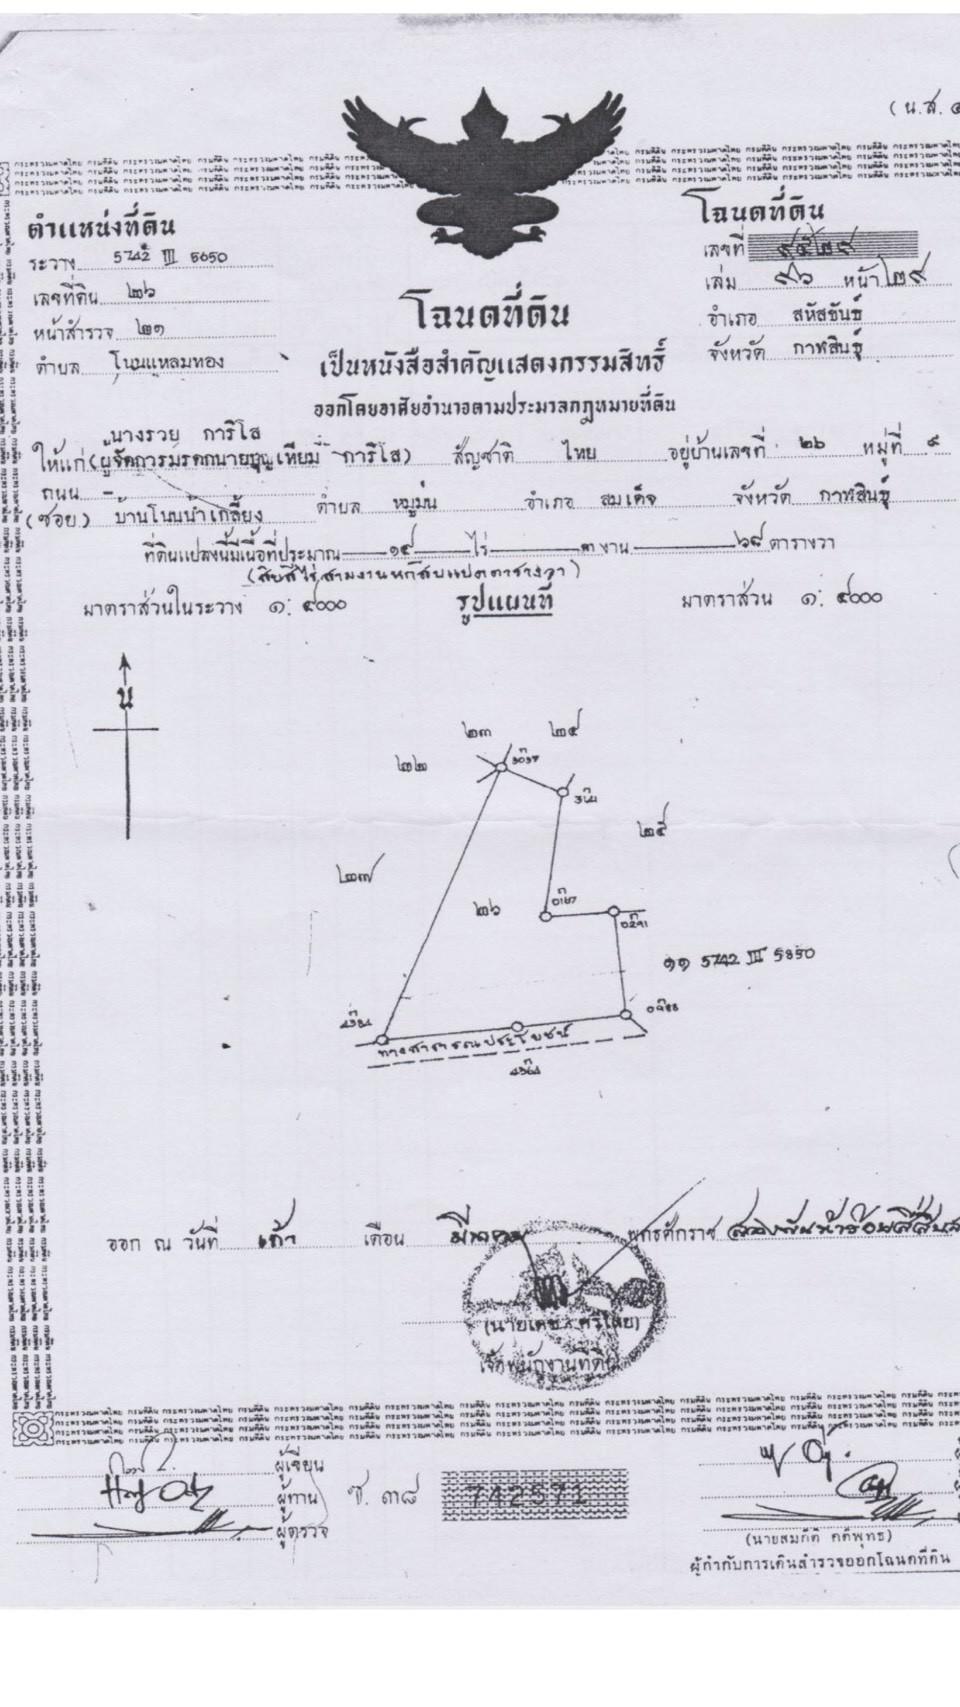 (น.ส. ๔
ตำแหน่งที่ดิน
ระวาง 5742 III 5650
เลขที่ดิน ๒๖
หน้าสำรวจ ๒๑
ตำบล โนนแหลมทอง
โฉนดที่ดิน
เลขที่ ๙๕๒๙
เล่ม ๙๖ หน้า ๒๙
อำเภอ สหัสขันธ์
จังหวัด กาฬสินธุ์
โฉนดที่ดิน
เป็นหนังสือสำคัญแสดงกรรมสิทธิ์
ออกโดยอาศัยอำนาจตามประมวลกฎหมายที่ดิน
นางรวย การิโส
ให้แก่ (ผู้จัดการมรดกนายบุญเทียม การิโส) สัญชาติ ไทย อยู่บ้านเลขที่ ๒๖ หมู่ที่ ๙
ถนน -
(ซอย) บ้านโนนน้ำเกลี้ยง ตำบล หมูม่น อำเภอ สมเด็จ จังหวัด กาฬสินธุ์
ที่ดินแปลงนี้มีเนื้อที่ประมาณ ๑๔ ไร่ ๓ งาน ๖๘ ตารางวา
(สิบสี่ไร่สามงานหกสิบแปดตารางวา)
มาตราส่วนในระวาง ๑: ๔๐๐๐ รูปแผนที่ มาตราส่วน ๑: ๔๐๐๐
น
๒๓ ๒๔
๒๒
๒๕
๒๗
๒๖
๑๑ 5742 III 5850
ทางสาธารณประโยชน์
ออก ณ วันที่ เก้า เดือน มีนาคม พุทธศักราช สองพันห้าร้อยสี่สิบ
เจ้าพนักงานที่ดิน
ผู้เขียน
ผู้ทาน
ผู้ตรวจ
ช. ๓๘ 742571
(นายสมกิติ คดีพุทธ)
ผู้กำกับการเดินสำรวจออกโฉนดที่ดิน